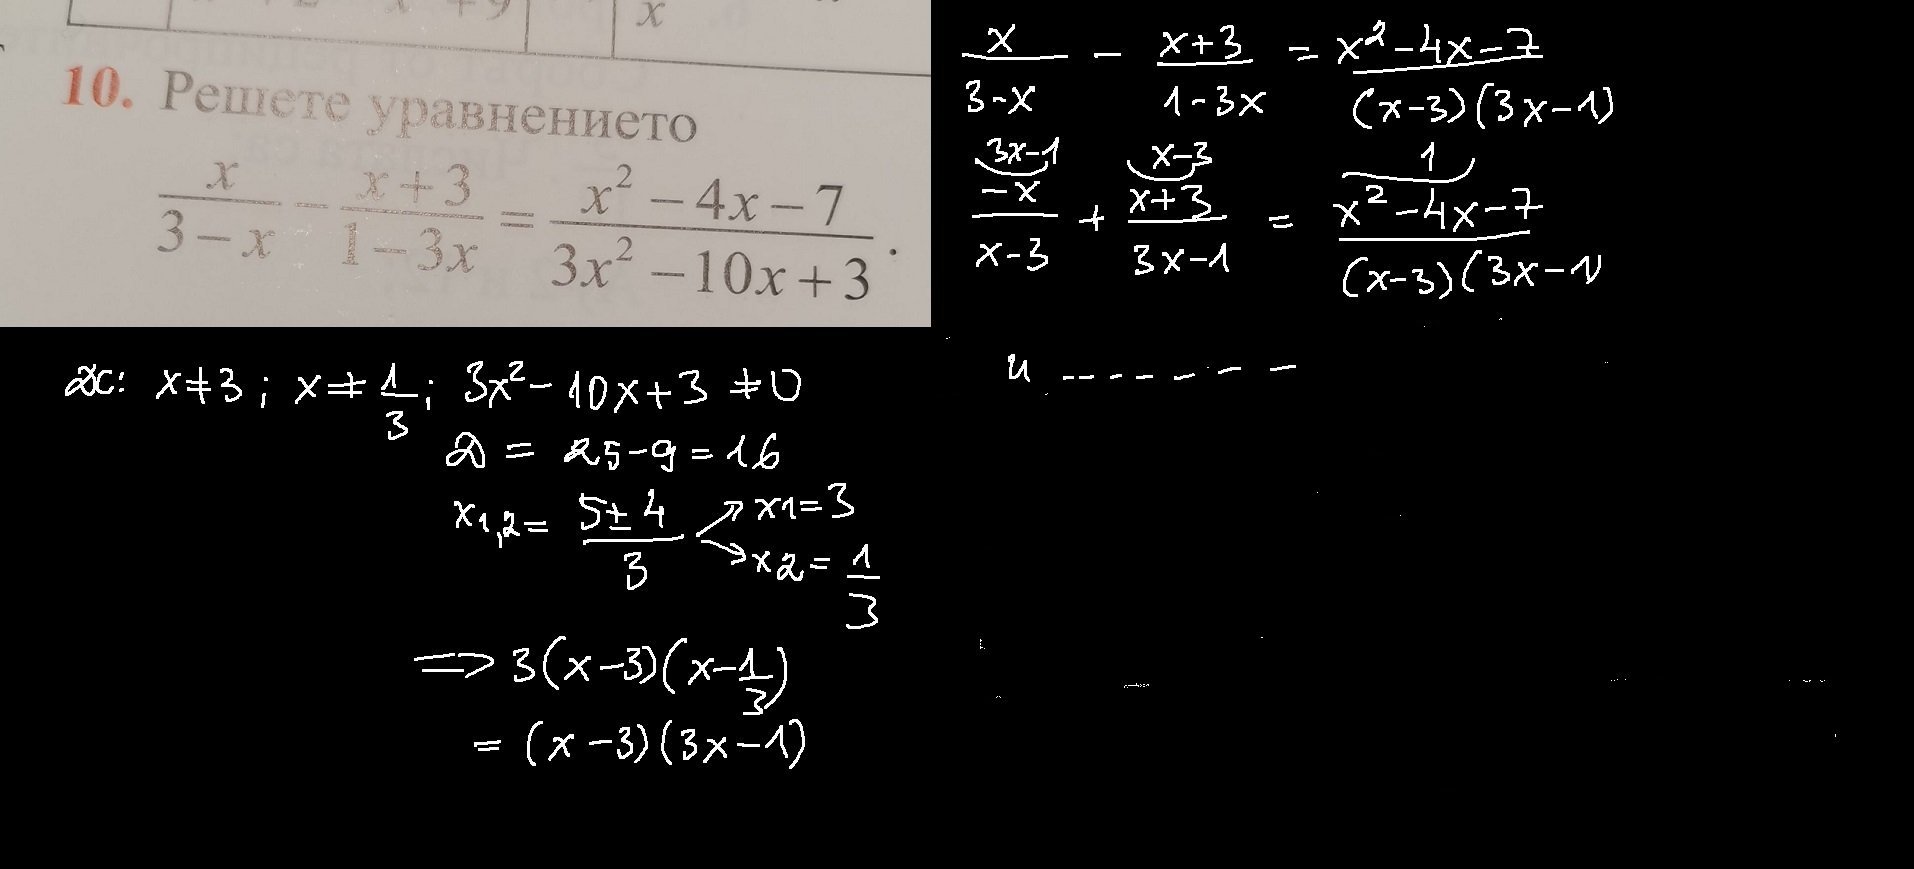 x
10. Решете уравнението
x/(3 − x) − (x + 3)/(1 − 3x) = (x² − 4x − 7)/(3x² − 10x + 3).
x/(3-x) - (x+3)/(1-3x) = (x²-4x-7)/((x-3)(3x-1))
3x-1 x-3 1
-x/(x-3) + (x+3)/(3x-1) = (x²-4x-7)/((x-3)(3x-1)
и - - - - - - -
ДС: x≠3; x≠1/3; 3x²-10x+3≠0
D = 25-9=16
x1,2= (5±4)/3 x1=3
x2=1/3
⇒ 3(x-3)(x-1/3)
= (x-3)(3x-1)